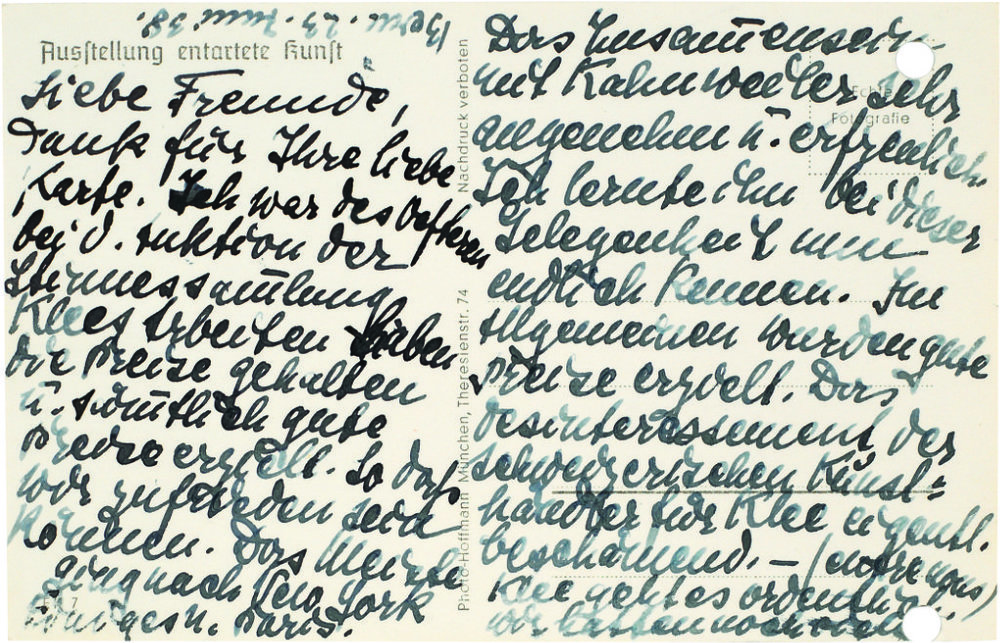 Bern. 23. Juni. 38.
Ausstellung entartete Kunst
Liebe Freunde,
Dank für Ihre liebe
Karte. Ich war des öfteren
bei d. Auktion der
Klees Arbeiten haben
die Preise gehalten
u. sämtlich gute
Preise erzielt. So daß
wir zufrieden sein
können. Das Meiste
ging nach New York
u. Paris.
Photo-Hoffmann München, Theresienstr. 74 Nachdruck verboten
Echte
Fotografie
Das Zusammensein
mit Kahnweiler sehr
angenehm u. erfreulich.
Ich lernte ihn bei dieser
Gelegenheit nun
endlich kennen. Im
Allgemeinen wurden gute
Preise erzielt. Das
desinteressement der
schweizerischen Kunst-
händler für Klee eigentl.
beschämend. — (entre nous)
Klee geht es ordentlich.
wir hatten noch